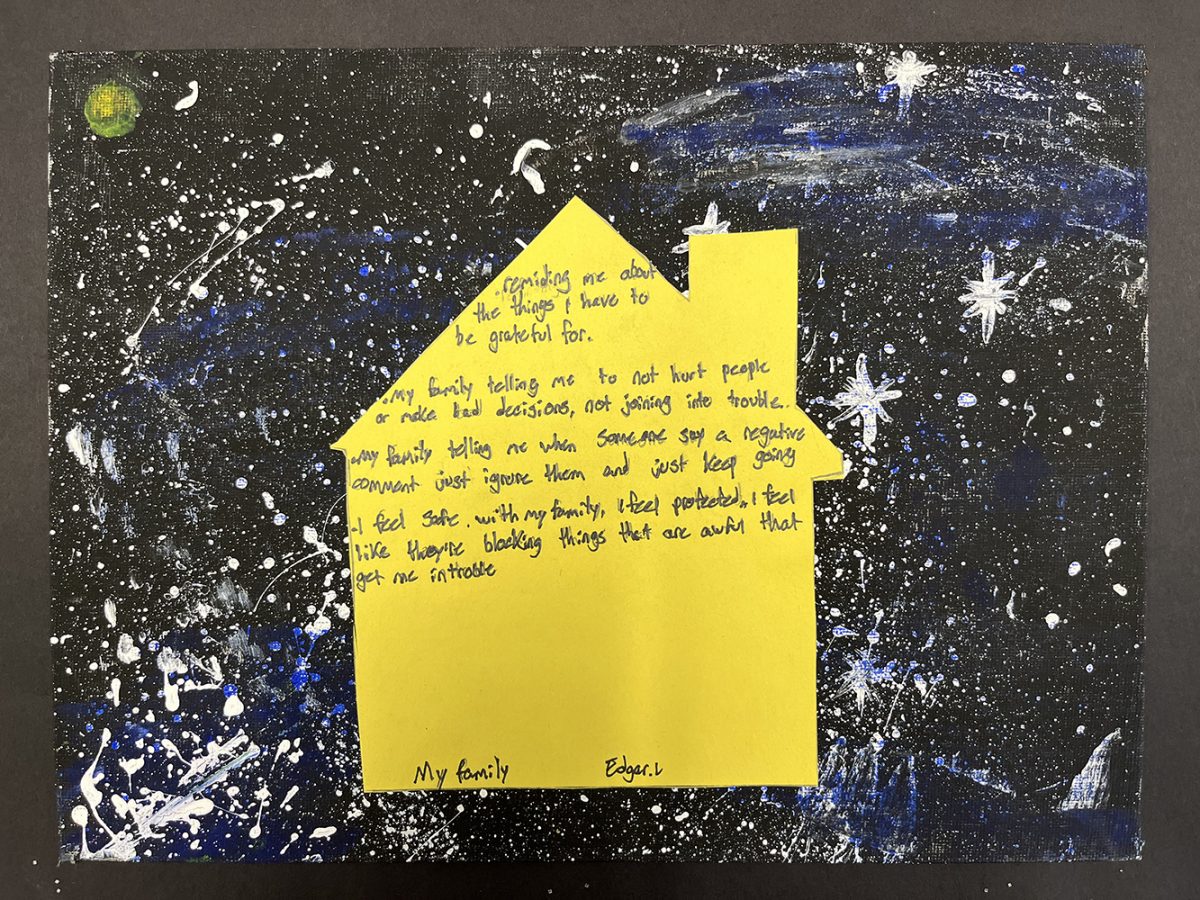 remiding me about
the things I have to
be grateful for.
.My family telling me to not hurt people
or make bad decisions, not joining into trouble..
.My family telling me when someone say a negative
comment just ignore them and just keep going
.I feel safe. with my family, I feel protected, I feel
like they're blocking things that are awful that
get me introble
My family Edger.L